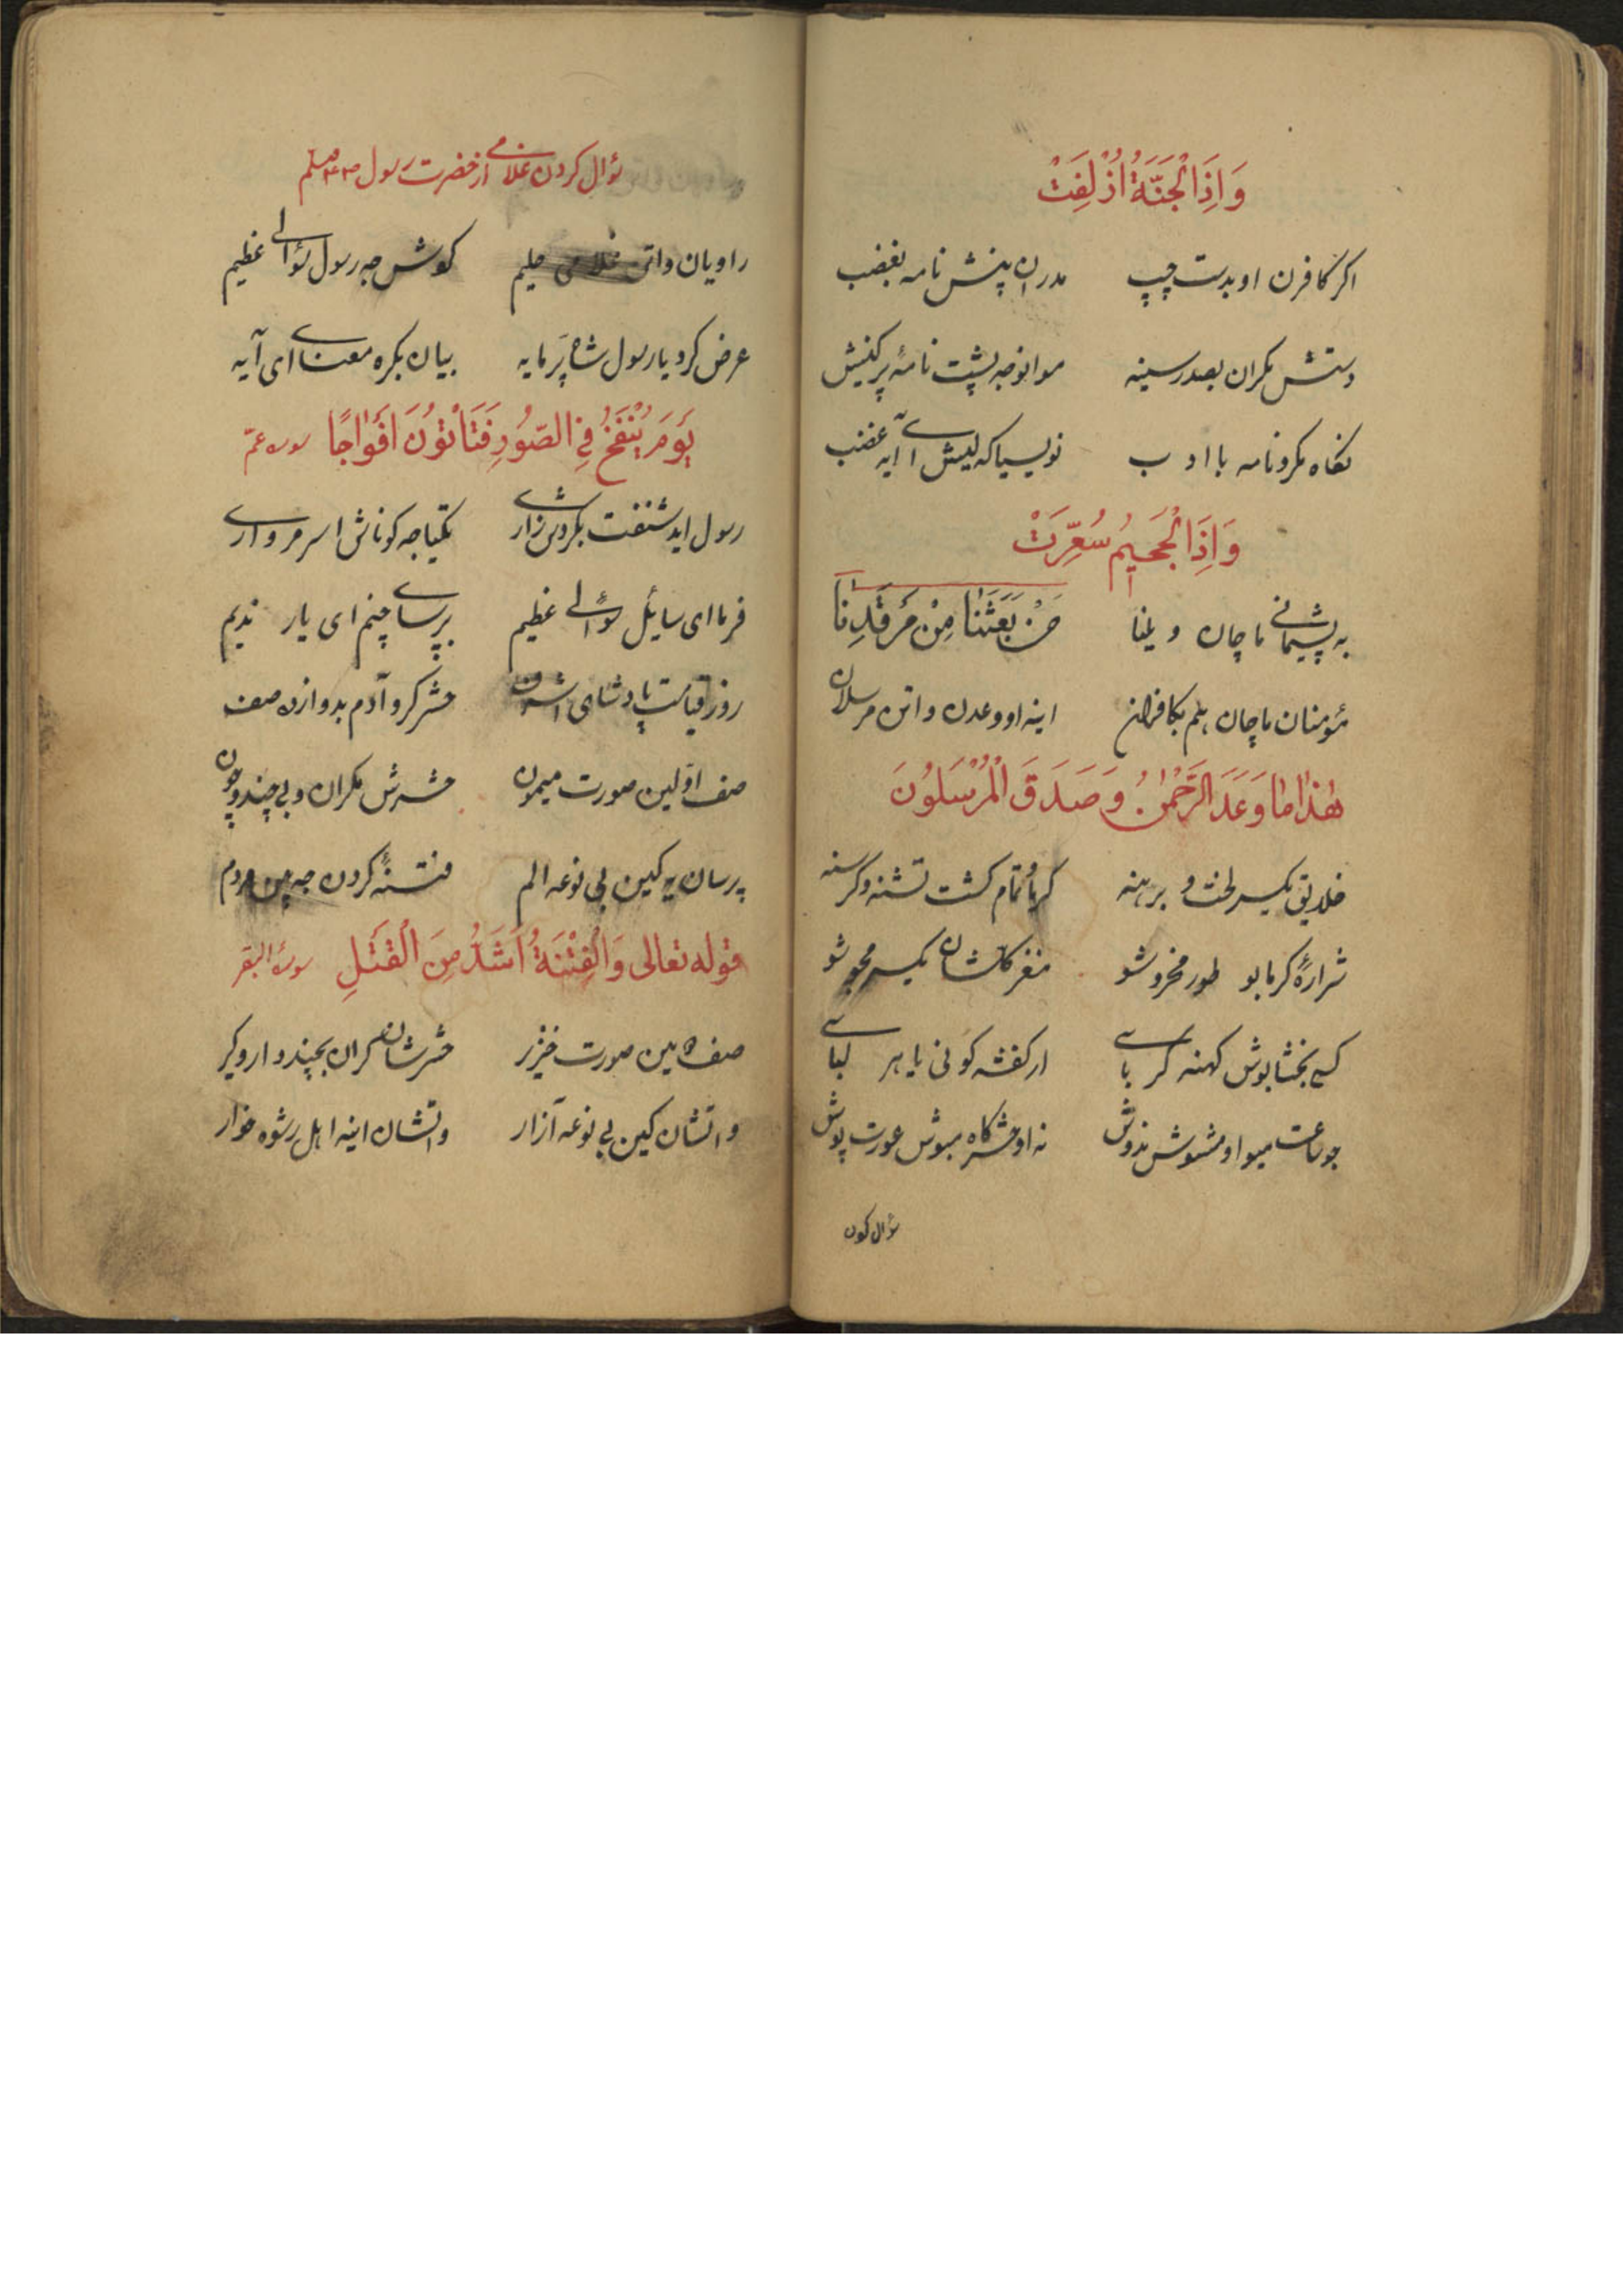 وَاِذَا الْجَنَّةُ اُزْلِفَتْ
اکر کافرن او بدست چپ مدران پنش نامه بغضب
دستش مکران بصدر سینه موانوجه پشت نامهٔ پرکنیش
نکاه مکرو نامه با ادب نویسیاکه لیش آ آیه غضب
وَاِذَا الْجَحيمُ سُعِّرَتْ
به پشیمانی ماچان ویلنا مَنْ بَعَثَنَا مِنْ مَرْقَدِنَا
مؤمنان ماچان بکافران اینه او وعدن واتن مرسلان
هٰذَا مَا وَعَدَ الرَّحْمٰنُ وَصَدَقَ الْمُرْسَلُونَ
خلایق یکسر لخت و برهنه کرما و تمام کشت تشنه و کرسنه
شرارهٔ کرما بو طور مخروشو مغز کلشان یکسر مجوشو
کسے بخشابوش کهنه کرباسے ار کفشه کونی یا هر لباسے
جو ساعت میو او مشوش ندوش نه او حشرکاه مبوش عورت پوش
سؤال کون
سؤال کردن غلامے از حضرت رسول صلعم
راویان واتن غلامی حلیم کوش جه رسول سؤالے عظیم
عرض کرد یا رسول شاه پرمایه بیان بکره معنای ای آیه
يَوْمَ يُنْفَخُ فِي الصُّورِ فَتَأْتُونَ اَفْوَاجًا سوره عمّ
رسول اید شنفت بکردش زارے تکیاجه کوناش اسر مروارے
فرما ای سایل سؤالے عظیم پرساے چنم ای یار ندیم
روز قیامت پادشای اشرف حشر کرو آدم بدوازده صف
صف اوّلین صورت میمون حشرش مکران وبی چند و چون
پرسان یه کین بی نوعه الم فتنهٔ کردن جه بین مردم
قوله تعالی وَالْفِتْنَةُ اَشَدُّ مِنَ الْقَتْلِ سورة البقر
صف دومین صورت خنزر حشرشان مکران بچند دار و کیر
واتشان کین بی نوعه آزار واتشان اینه اهل رشوه خوار